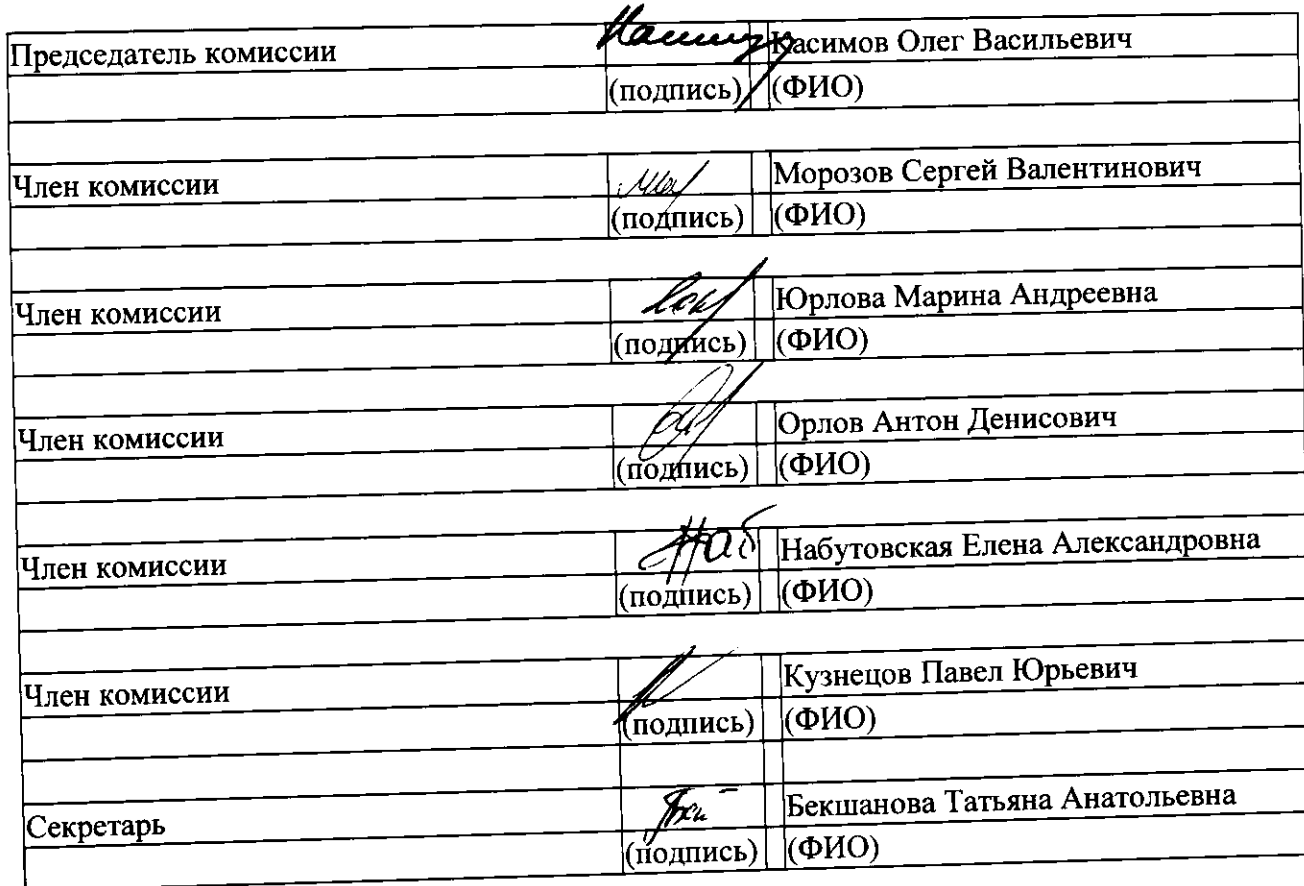 Председатель комиссии Касимов Олег Васильевич
(подпись) (ФИО)
Член комиссии Морозов Сергей Валентинович
(подпись) (ФИО)
Член комиссии Юрлова Марина Андреевна
(подпись) (ФИО)
Член комиссии Орлов Антон Денисович
(подпись) (ФИО)
Член комиссии Наб Набутовская Елена Александровна
(подпись) (ФИО)
Член комиссии Кузнецов Павел Юрьевич
(подпись) (ФИО)
Секретарь Бекшанова Татьяна Анатольевна
(подпись) (ФИО)